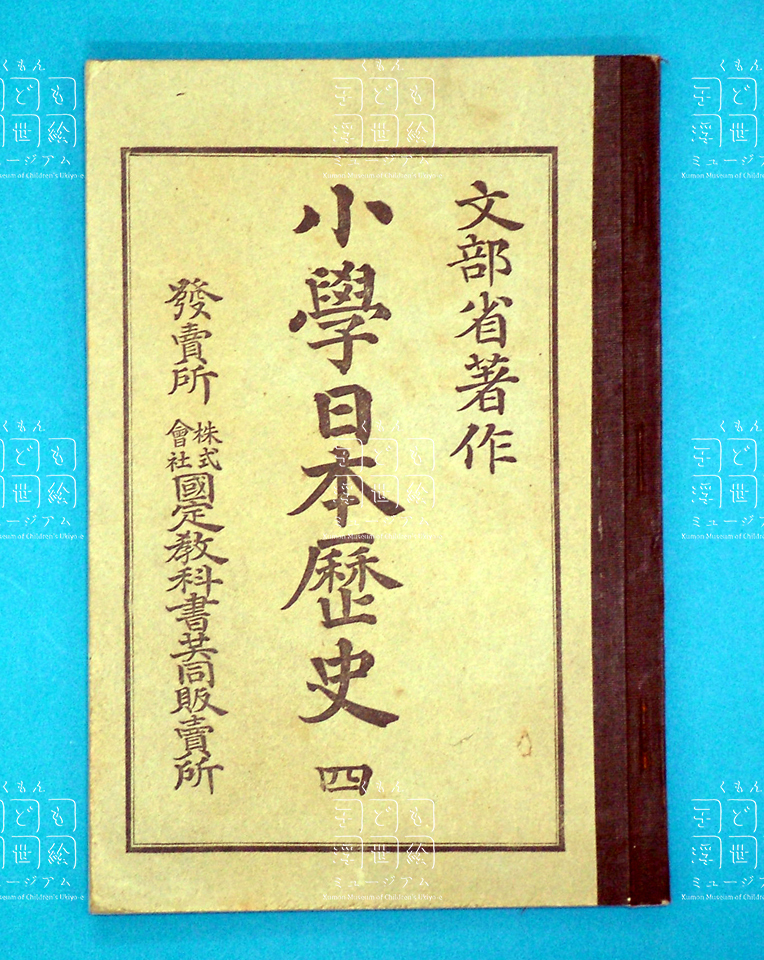 文部省著作
小學日本歷史 四
發賣所 株式會社 國定教科書共同販賣所
くもん
子ども
浮世絵
ミュージアム
Kumon Museum of Children's Ukiyo-e